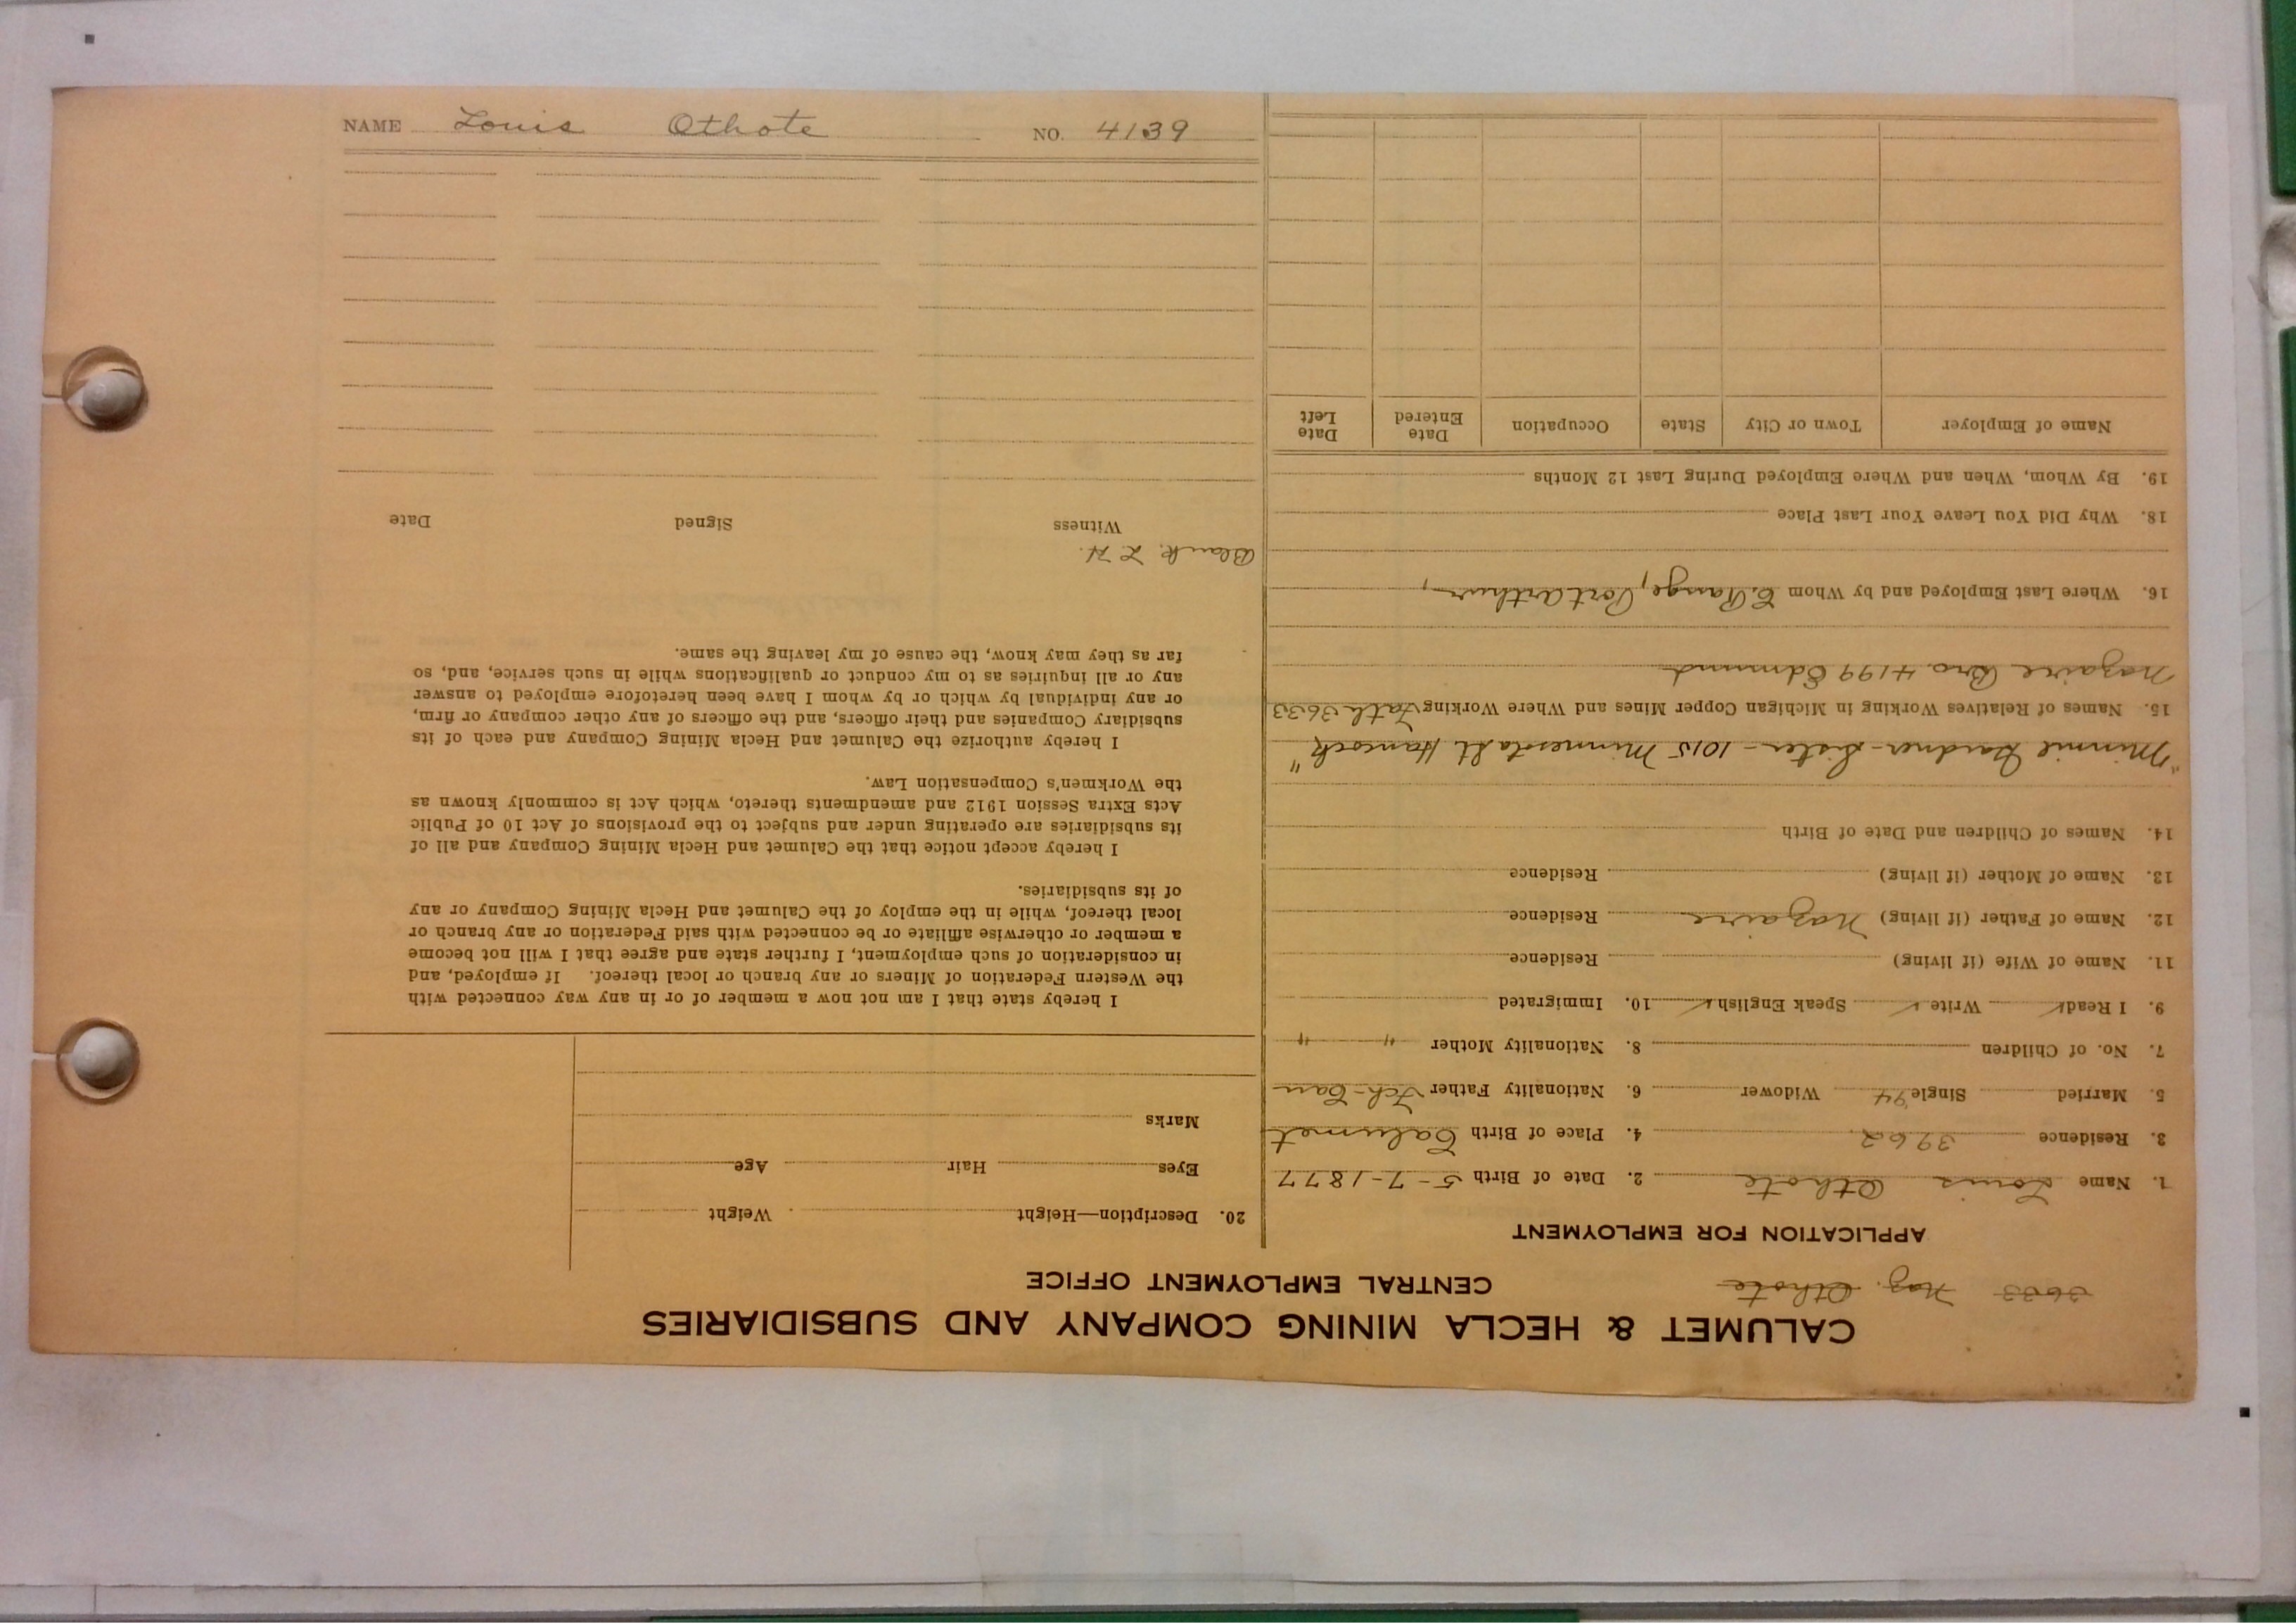 NAME Louis Othote NO. 4139
CALUMET & HECLA MINING COMPANY AND SUBSIDIARIES
CENTRAL EMPLOYMENT OFFICE
3633 Naz. Othote
APPLICATION FOR EMPLOYMENT
1. Name Louis Othote 2. Date of Birth 5-7-1877
3. Residence 3962. 4. Place of Birth Calumet
5. Married Single 94 Widower 6. Nationality Father Fch-Can
7. No. of Children 8. Nationality Mother " "
9. I Read ✓ Write ✓ Speak English ✓ 10. Immigrated
11. Name of Wife (if living) Residence
12. Name of Father (if living) Nazaire Residence
13. Name of Mother (if living) Residence
14. Names of Children and Date of Birth
"Minnie Gardner - Sister - 1015 Minnesota St Hancock"
15. Names of Relatives Working in Michigan Copper Mines and Where Working Fath 3633
Nazaire Bro. 4199 Edmund
16. Where Last Employed and by Whom C. Range, Port Arthur,
18. Why Did You Leave Your Last Place
19. By Whom, When and Where Employed During Last 12 Months
Name of Employer Town or City State Occupation Date Entered Date Left
20. Description—Height Weight
Eyes Hair Age
Marks
I hereby state that I am not now a member of or in any way connected with
the Western Federation of Miners or any branch or local thereof. If employed, and
in consideration of such employment, I further state and agree that I will not become
a member or otherwise affiliate or be connected with said Federation or any branch or
local thereof, while in the employ of the Calumet and Hecla Mining Company or any
of its subsidiaries.
I hereby accept notice that the Calumet and Hecla Mining Company and all of
its subsidiaries are operating under and subject to the provisions of Act 10 of Public
Acts Extra Session 1912 and amendments thereto, which Act is commonly known as
the Workmen's Compensation Law.
I hereby authorize the Calumet and Hecla Mining Company and each of its
subsidiary Companies and their officers, and the officers of any other company or firm,
or any individual by which or by whom I have been heretofore employed to answer
any or all inquiries as to my conduct or qualifications while in such service, and, so
far as they may know, the cause of my leaving the same.
Blank. L H.
Witness Signed Date